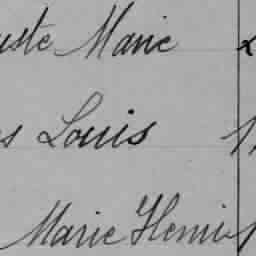 uste Marie
s Louis
Marie Henri